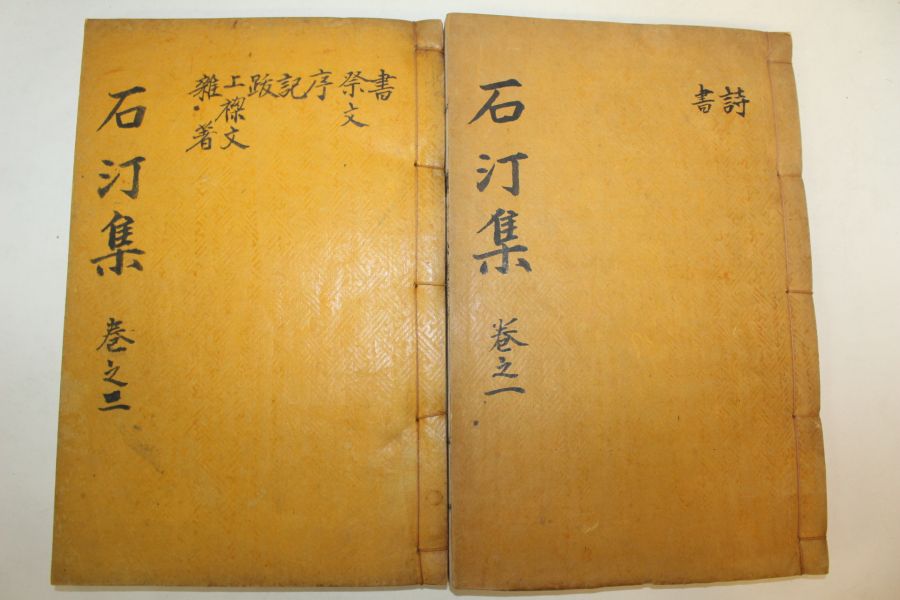 詩
書
石汀集 卷之一
書
祭文
序
記
跋
上樑文
雜著
石汀集 卷之二